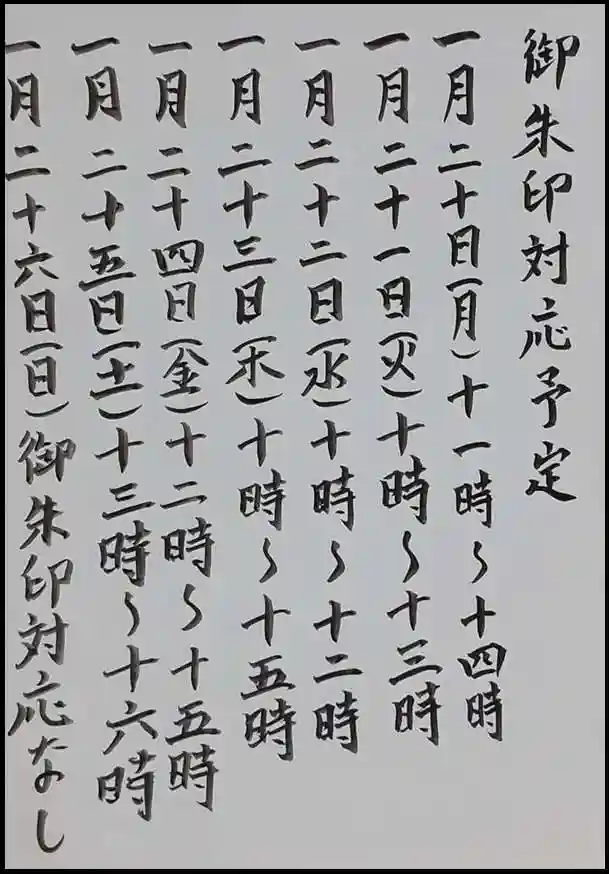 御朱印対応予定
一月二十日(月)十一時~十四時
一月二十一日(火)十時~十三時
一月二十二日(水)十時~十二時
一月二十三日(木)十時~十五時
一月二十四日(金)十二時~十五時
一月二十五日(土)十三時~十六時
一月二十六日(日)御朱印対応なし